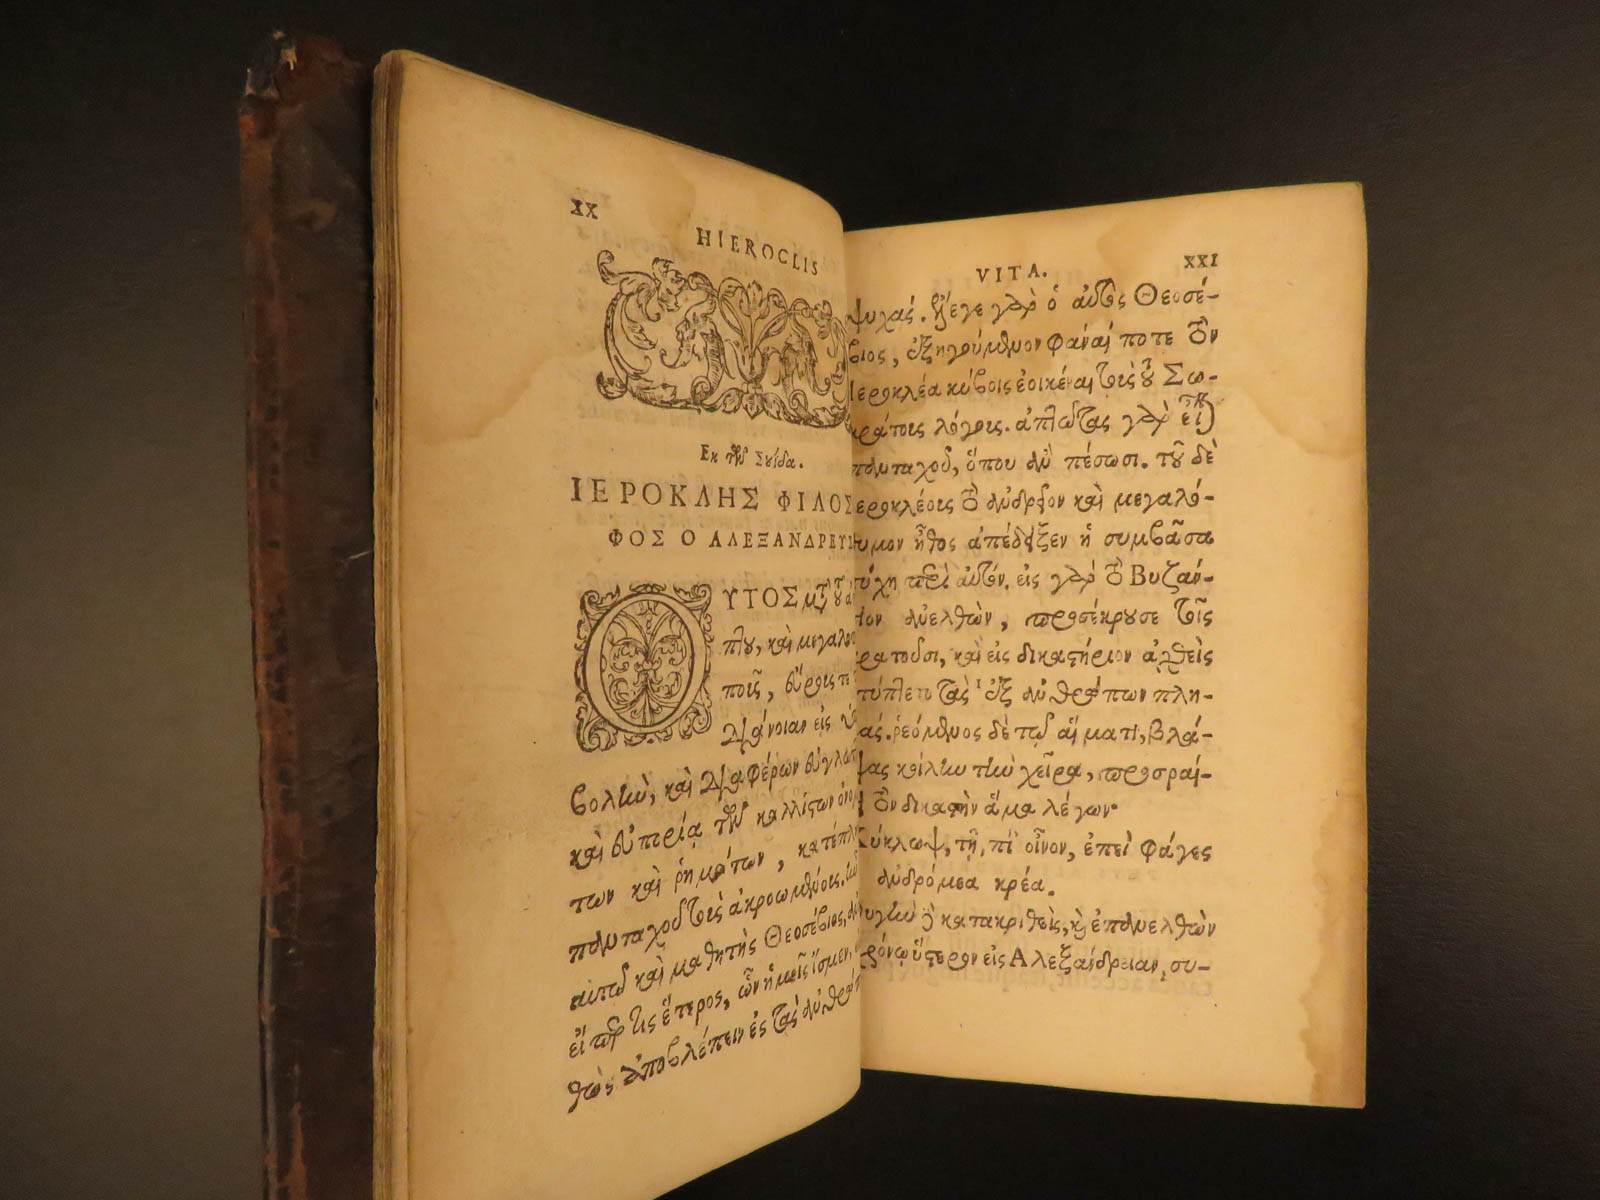 XX
HIEROCLIS
Ἐκ τῶν Σουίδα.
ΙΕΡΟΚΛΗΣ ΦΙΛΟΣ
ΦΟΣ Ο ΑΛΕΞΑΝΔΡΕΥΣ
ΟΥΤΟΣ μετὰ τοῦ
καὶ μεγαλο
διάνοιαν εἰς
βολὴν, καὶ διαφέρων εὐγλωτ
καὶ εὐπορίᾳ τῶν καλλίστων ὀνο
των καὶ ῥημάτων, κατέπλη
πανταχοῦ τοὺς ἀκροωμένους.
αὐτῷ καὶ μαθητὴς Θεοσέβιος, ἀν
εἴπερ τις ἕτερος, ὧν ἡμεῖς ἴσμεν,
ἀποβλέπειν ἐς τὰς ἀνθρω
VITA. XXI
ψυχάς. ἔλεγε γὰρ ὁ αὐτὸς Θεοσέ-
βιος, ἐξηγούμενον φάναι ποτε τὸν
Ἱεροκλέα κύβοις ἐοικέναι τοὺς τοῦ Σω-
κράτους λόγους. ἀπτῶτας γὰρ εἶναι
πανταχοῦ, ὅπου ἂν πέσωσι. τοῦ δὲ
εροκλέους τὸ ἀνδρεῖον καὶ μεγαλό-
υμον ἦθος ἀπέδειξεν ἡ συμβᾶσα
τύχη περὶ αὐτόν. εἰς γὰρ τὸ Βυζάν-
ιον ἀνελθὼν, προσέκρουσε τοῖς
ρατοῦσι, καὶ εἰς δικαστήριον ἀχθεὶς
τύπτετο τὰς ἐξ ἀνθρώπων πλη-
άς. ῥεόμενος δὲ τῷ αἵματι, βλά-
ψας κοίλην τὴν χεῖρα, προσραί-
τὸν δικαστὴν ἅμα λέγων·
Κύκλωψ, τῆ, πί οἶνον, ἐπεὶ φάγες
ἀνδρόμεα κρέα.
υγὴν δὲ κατακριθεὶς, καὶ ἐπανελθὼν
χρόνῳ ὕστερον εἰς Ἀλεξάνδρειαν, συ-